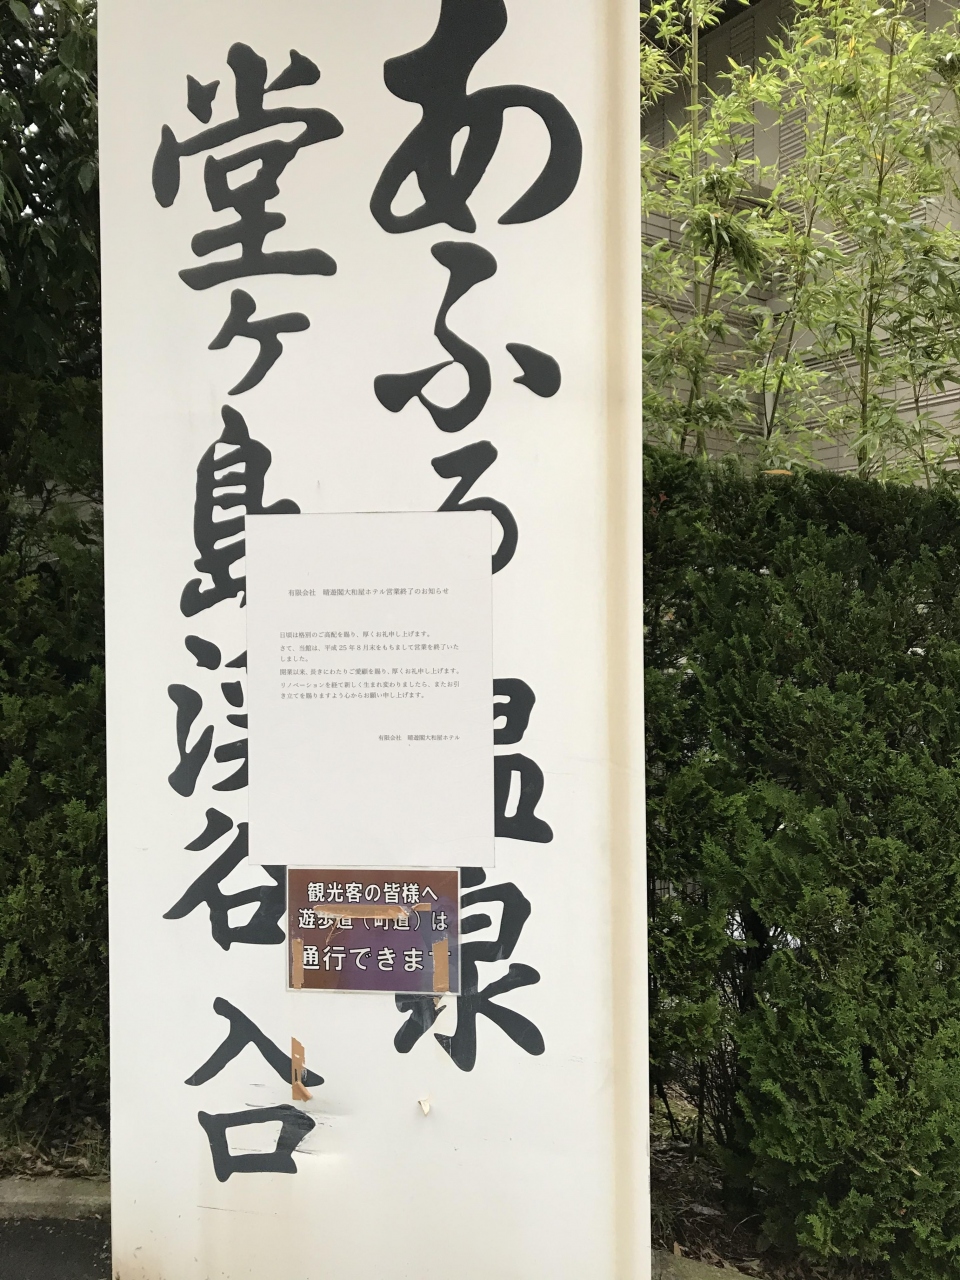 あふる温泉
堂ヶ島渓谷入口
有限会社 晴遊閣大和屋ホテル営業終了のお知らせ
日頃は格別のご高配を賜り、厚くお礼申し上げます。
さて、当館は、平成25年8月末をもちまして営業を終了いた
しました。
開業以来、長きにわたりご愛顧を賜り、厚くお礼申し上げます。
リノベーションを経て新しく生まれ変わりましたら、またお引
き立てを賜りますよう心からお願い申し上げます。
有限会社 晴遊閣大和屋ホテル
観光客の皆様へ
遊歩道（町道）は
通行できます